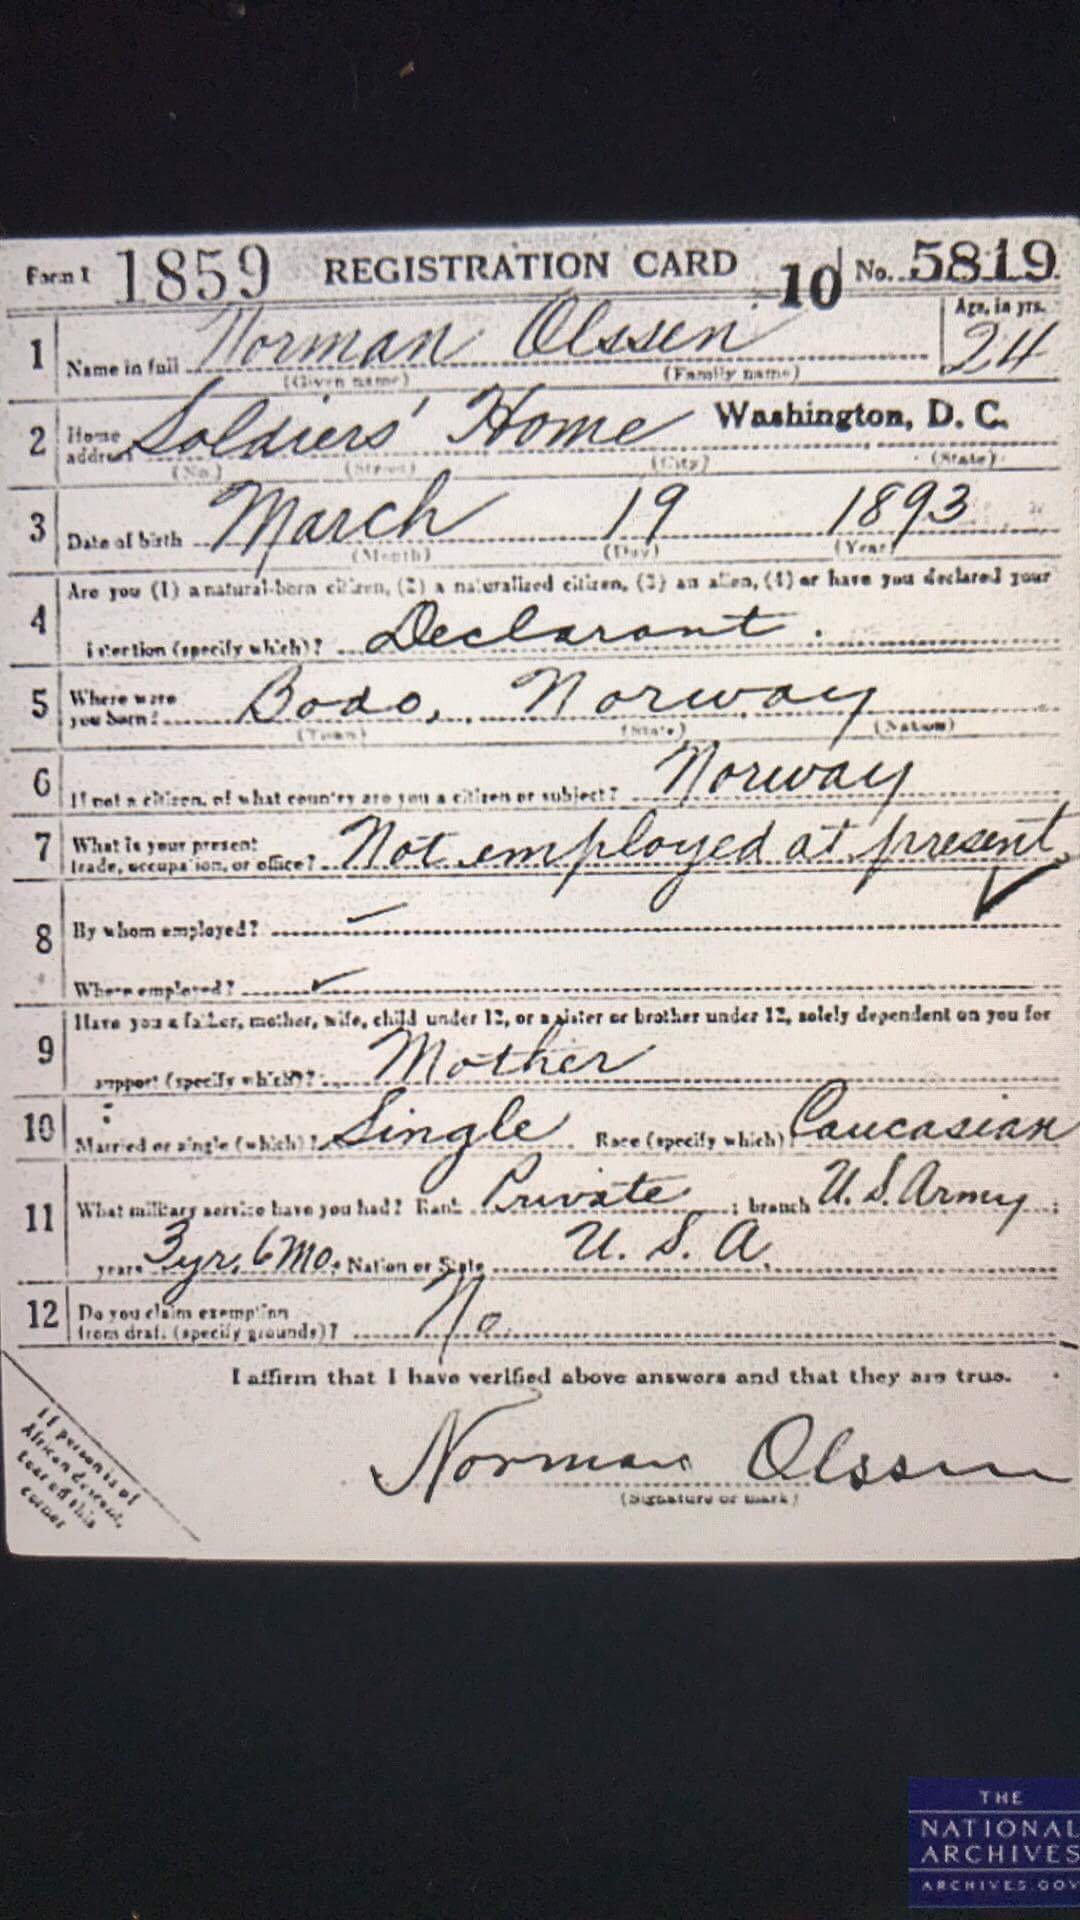 Form 1 1859 REGISTRATION CARD 10 No. 5819
1 Name in full Norman Olssen Age, in yrs. 24
(Given name) (Family name)
2 Home address Soldiers' Home Washington, D. C.
(No.) (Street) (City) (State)
3 Date of birth March 19 1893
(Month) (Day) (Year)
4 Are you (1) a natural-born citizen, (2) a naturalized citizen, (3) an alien, (4) or have you declared your
intention (specify which)? Declarant.
5 Where were you born? Bodo, Norway
(Town) (State) (Nation)
6 If not a citizen, of what country are you a citizen or subject? Norway
7 What is your present trade, occupation, or office? Not employed at present
8 By whom employed? —
Where employed? ✓
9 Have you a father, mother, wife, child under 12, or a sister or brother under 12, solely dependent on you for
support (specify which)? Mother
10 Married or single (which)? Single Race (specify which)? Caucasian
11 What military service have you had? Rank Private ; branch U. S. Army ;
years 3 yr. 6 Mo. Nation or State U. S. A.
12 Do you claim exemption from draft (specify grounds)? No.
I affirm that I have verified above answers and that they are true.
Norman Olssen
(Signature or mark)
If person is of
African descent,
tear off this
corner
THE
NATIONAL
ARCHIVES
ARCHIVES.GOV